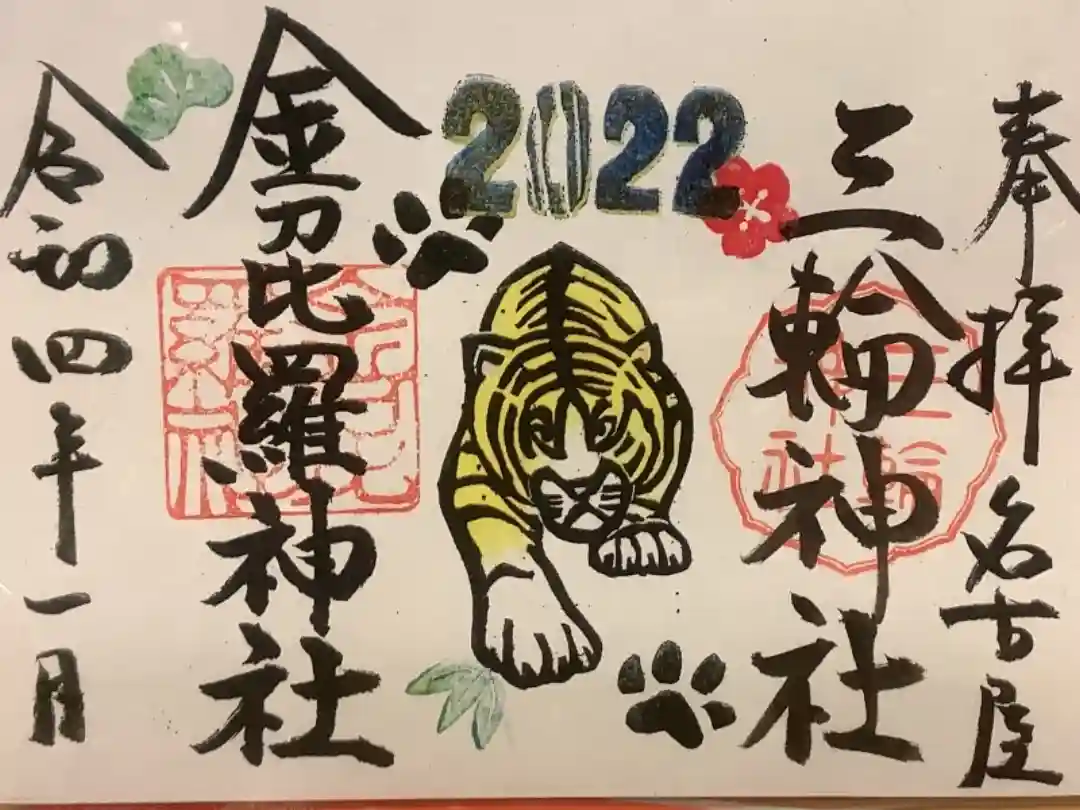 奉拝 名古屋
三輪神社
2022
金刀比羅神社
令和四年一月